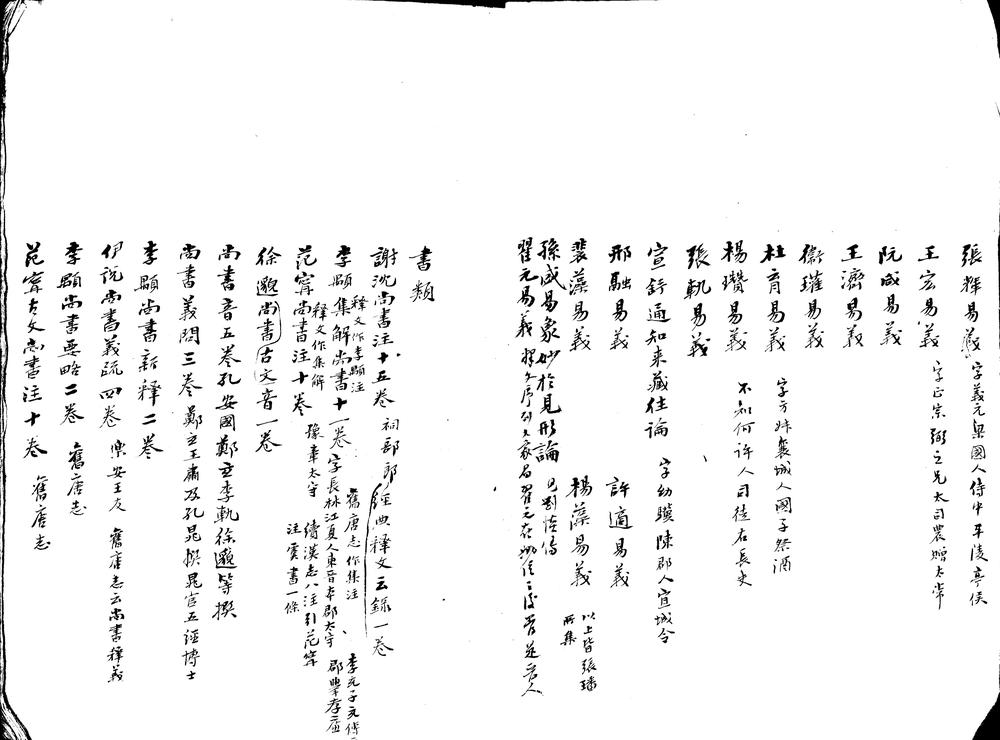 張輝易義 字義元梁國人侍中平陵亭侯
王宏易義 字正宗弼之兄太司農贈太常
阮咸易義
王濟易義
衛瓘易義
杜育易義 字方叔襄城人國子祭酒
楊瓚易義 不知何許人司徒右長史
張軌易義
宣舒通知來藏往論 字幼驥陳郡人宣城令
邢融易義 許適易義
裴藻易義 楊藻易義 以上皆張璠所集
孫盛易象妙於見形論 見劉惔傳
翟元易義
書類
謝沈尚書注十五卷 祠部郎 經典釋文云錄一卷
李顒集解尚書十一卷 釋文作李顒注 字長林江夏人東晉本郡太守 舊唐志作集注 李充子充傳 郡舉孝廉
范寗尚書注十卷 釋文作集解 豫章太守 續漢志八注引范寗注虞書一條
徐邈尚書古文音一卷
尚書音五卷孔安國鄭玄李軌徐邈等撰
尚書義問三卷鄭玄王肅及孔晁撰晁官五經博士
李顒尚書新釋二卷
伊說尚書義疏四卷 樂安王友 舊唐志云尚書釋義
李顒尚書要略二卷 舊唐志
范寗古文尚書注十卷 舊唐志